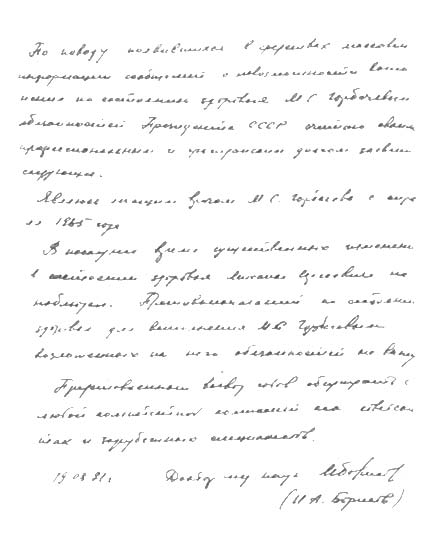 По поводу появившихся в средствах массовой
информации сообщений о невозможности выпо
нения по состоянию здоровья М С Горбачевым
обязанностей Президента СССР считаю своим
профессиональным и гражданским долгом заявить
следующее.
Являюсь лечащим врачом М. С. Горбачева с апре
ля 1985 года
В настоящее время существенных изменени
в состоянии здоровья Михаила Сергеевича не
наблюдал. Противопоказаний по состоянию
здоровья для выполнения М С Горбачевым
возложенных на него обязанностей не вижу
вывод готов обсуждать с
любой компетентной комиссией из советск
их и зарубежных специалистов.
19 08 91 г Доктор мед наук
(И. А. Борисов)